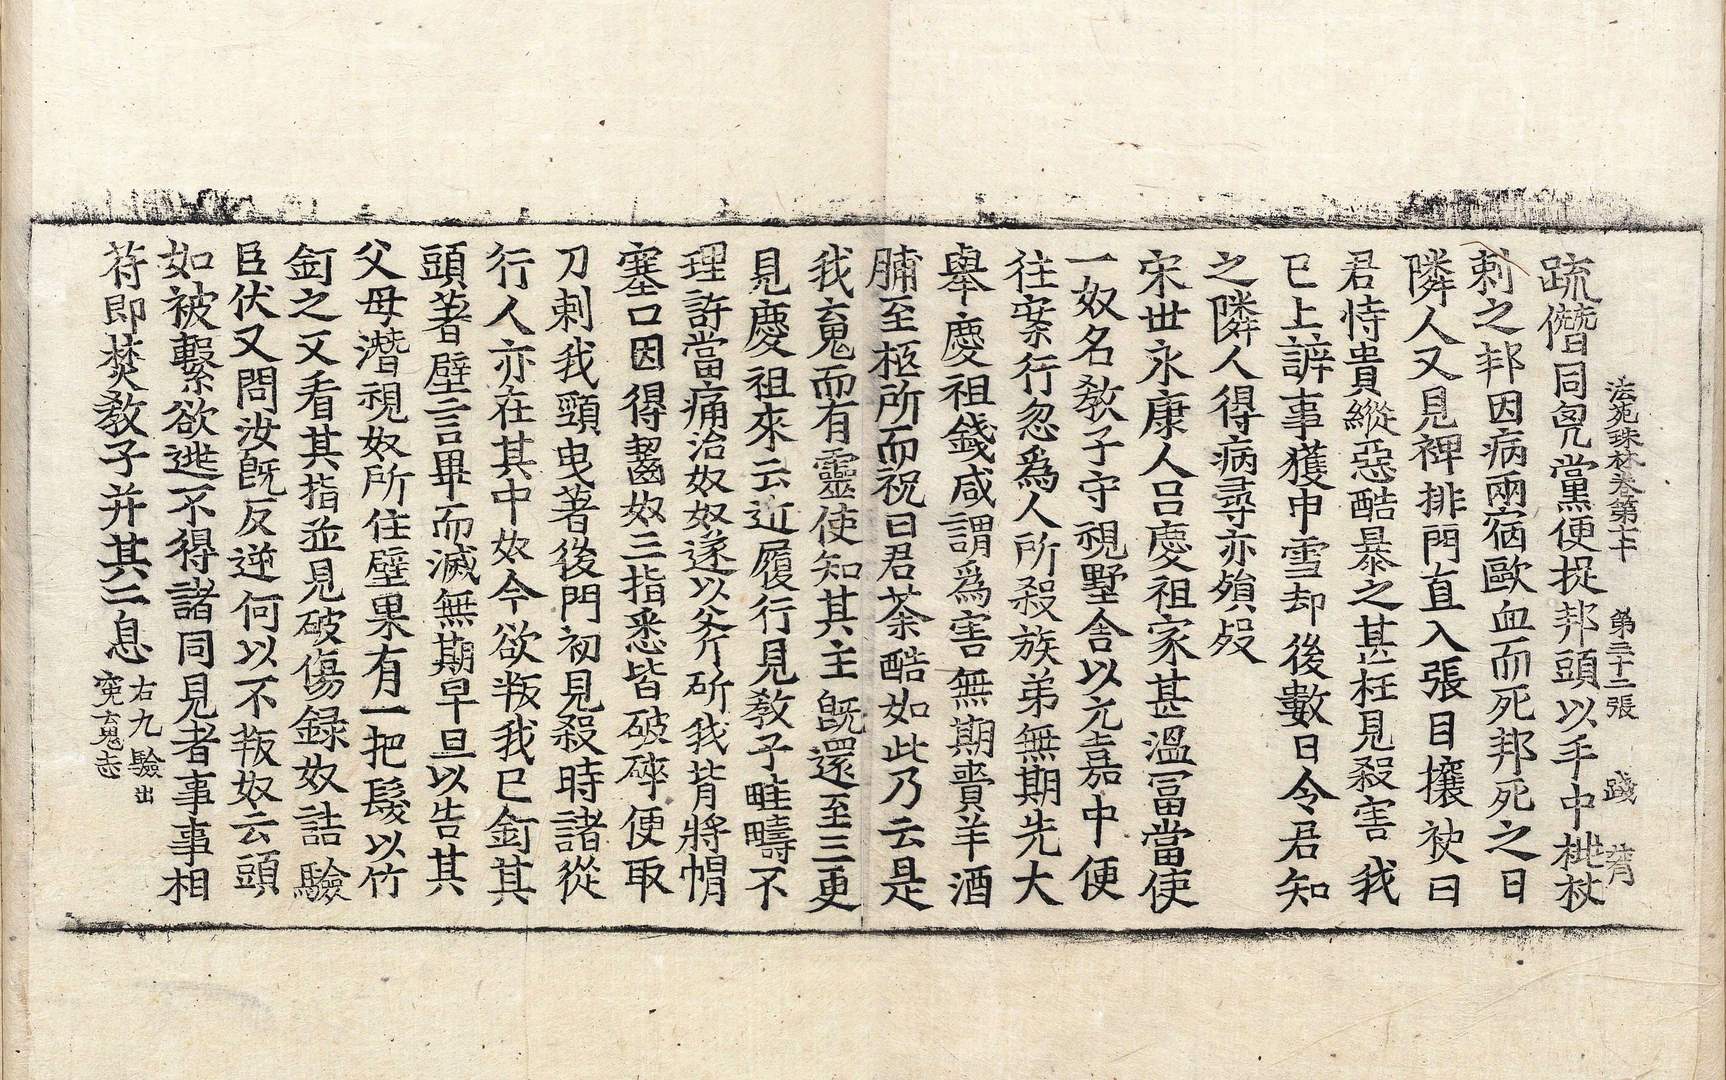 法苑珠林卷第七十　第三十二張　踐
䟽僭同兇黨便捉邦頭以手中桃杖
刺之邦因病兩宿歐血而死邦死之日
隣人又見裨排門直入張目攘袂曰
君恃貴縱惡酷暴之甚枉見殺害我
已上訴事獲申雪却後數日令君知
之隣人得病尋亦殞歿
宋世永康人呂慶祖家甚溫冨當使
一奴名教子守視墅舍以元嘉中便
往案行忽爲人所殺族弟無期先大
舉慶祖錢咸謂爲害無期賷羊酒
脯至柩所而祝曰君荼酷如此乃云是
我䰟而有靈使知其主旣還至三更
見慶祖來云近履行見教子畦疇不
理許當痛治奴奴遂以斧斫我背將帽
塞口因得齧奴三指悉皆破碎便取
刀刺我頸曳著後門初見殺時諸從
行人亦在其中奴今欲叛我已釘其
頭著壁言畢而滅無期早旦以告其
父母潛視奴所住壁果有一把髮以竹
釘之又看其指並見破傷録奴詰驗
臣伏又問汝旣反逆何以不叛奴云頭
如被繫欲逃不得諸同見者事事相
符即焚教子并其二息 右九驗出寃䰟志